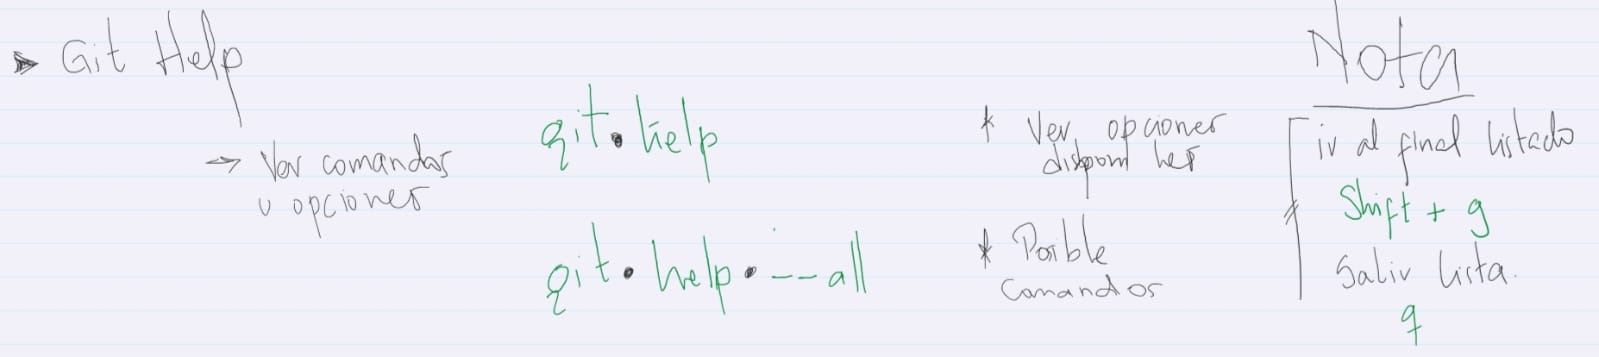 ➤ Git Help
→ Ver comandos
u opciones
git•help
* Ver opciones
disponibles
git•help•--all
* Posible
Comandos
Nota
ir al final listado
Shift + g
Salir lista.
q